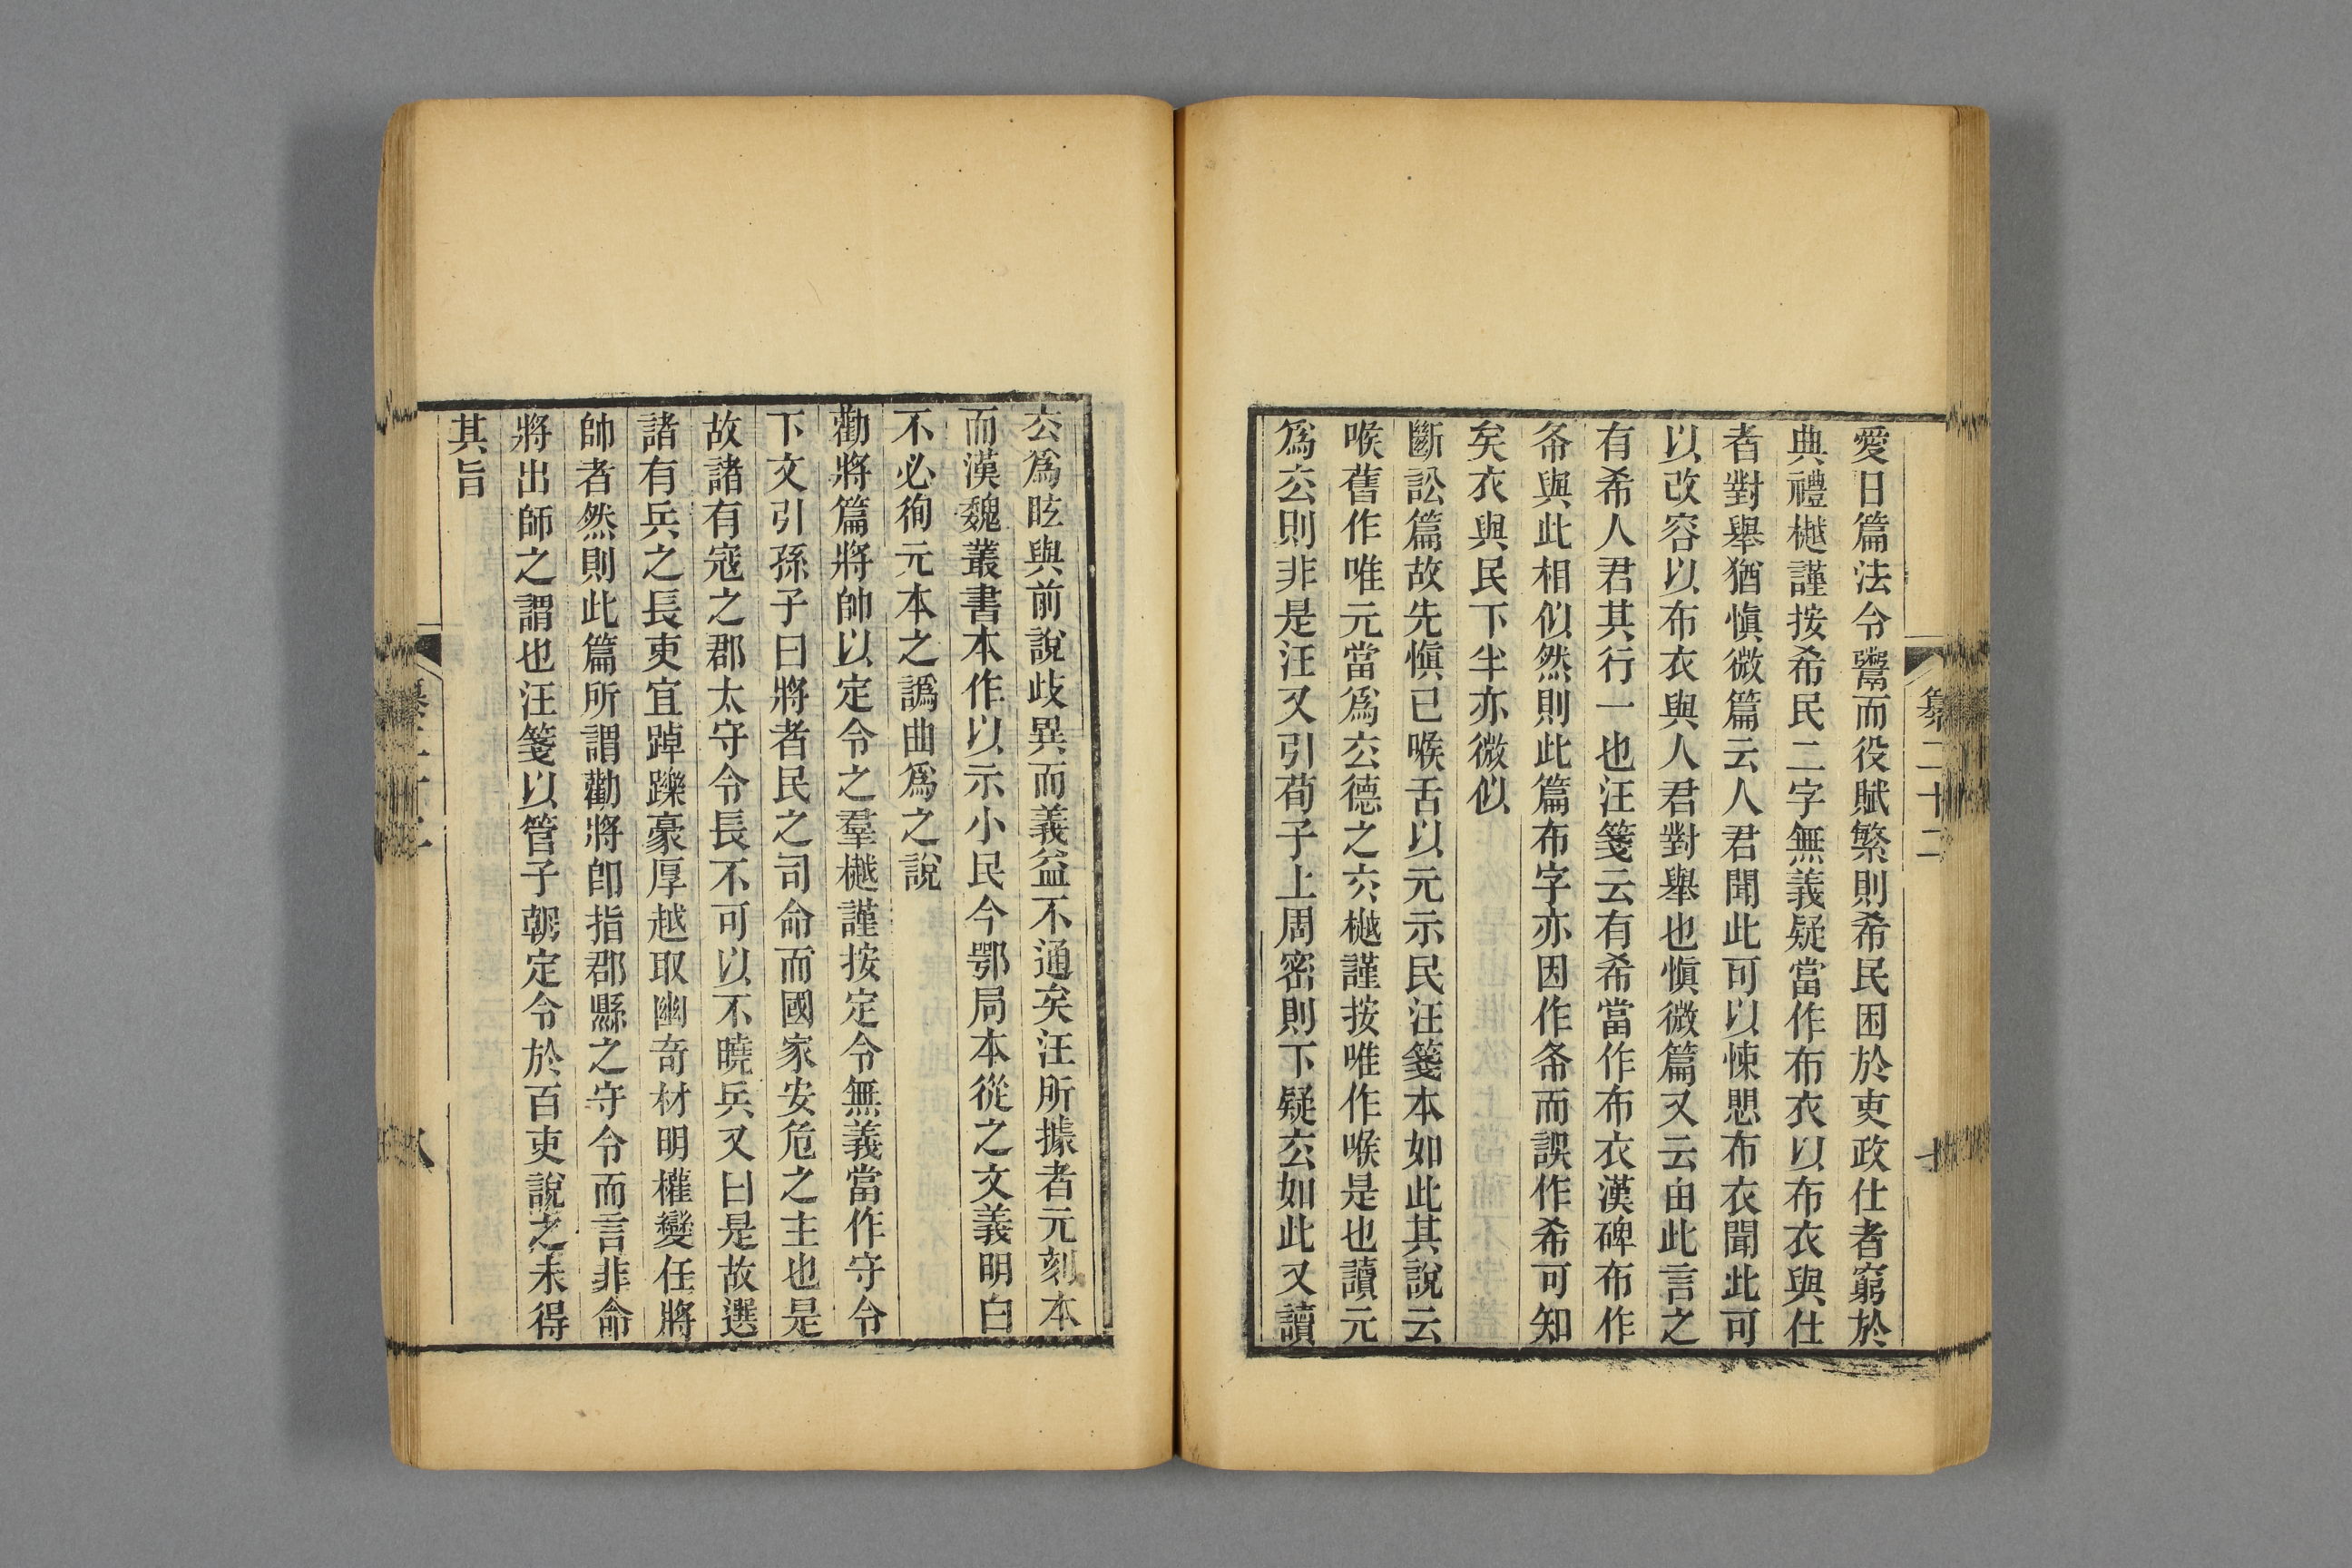 纂二十二
七
愛日篇法令鬻而役賦繁則希民困於吏政仕者窮於
典禮樾謹按希民二字無義疑當作布衣以布衣與仕
者對舉猶慎微篇云人君聞此可以悚愳布衣聞此可
以改容以布衣與人君對舉也慎微篇又云由此言之
有希人君其行一也汪箋云有希當作布衣漢碑布作
㠹與此相似然則此篇布字亦因作㠹而誤作希可知
矣衣與民下半亦微似
斷訟篇故先慎己喉舌以元示民汪箋本如此其說云
喉舊作唯元當為玄德之玄樾謹按唯作喉是也讀元
為玄則非是汪又引荀子上周密則下疑玄如此又讀
玄為眩與前說歧異而義益不通矣汪所據者元刻本
而漢魏叢書本作以示小民今鄂局本從之文義明白
不必徇元本之譌曲為之說
勸將篇將帥以定令之羣樾謹按定令無義當作守令
下文引孫子曰將者民之司命而國家安危之主也是
故諸有寇之郡太守令長不可以不曉兵又曰是故選
諸有兵之長吏宜踔躒豪厚越取幽奇材明權變任將
帥者然則此篇所謂勸將卽指郡縣之守令而言非命
將出師之謂也汪箋以管子朝定令於百吏說之未得
其旨
八